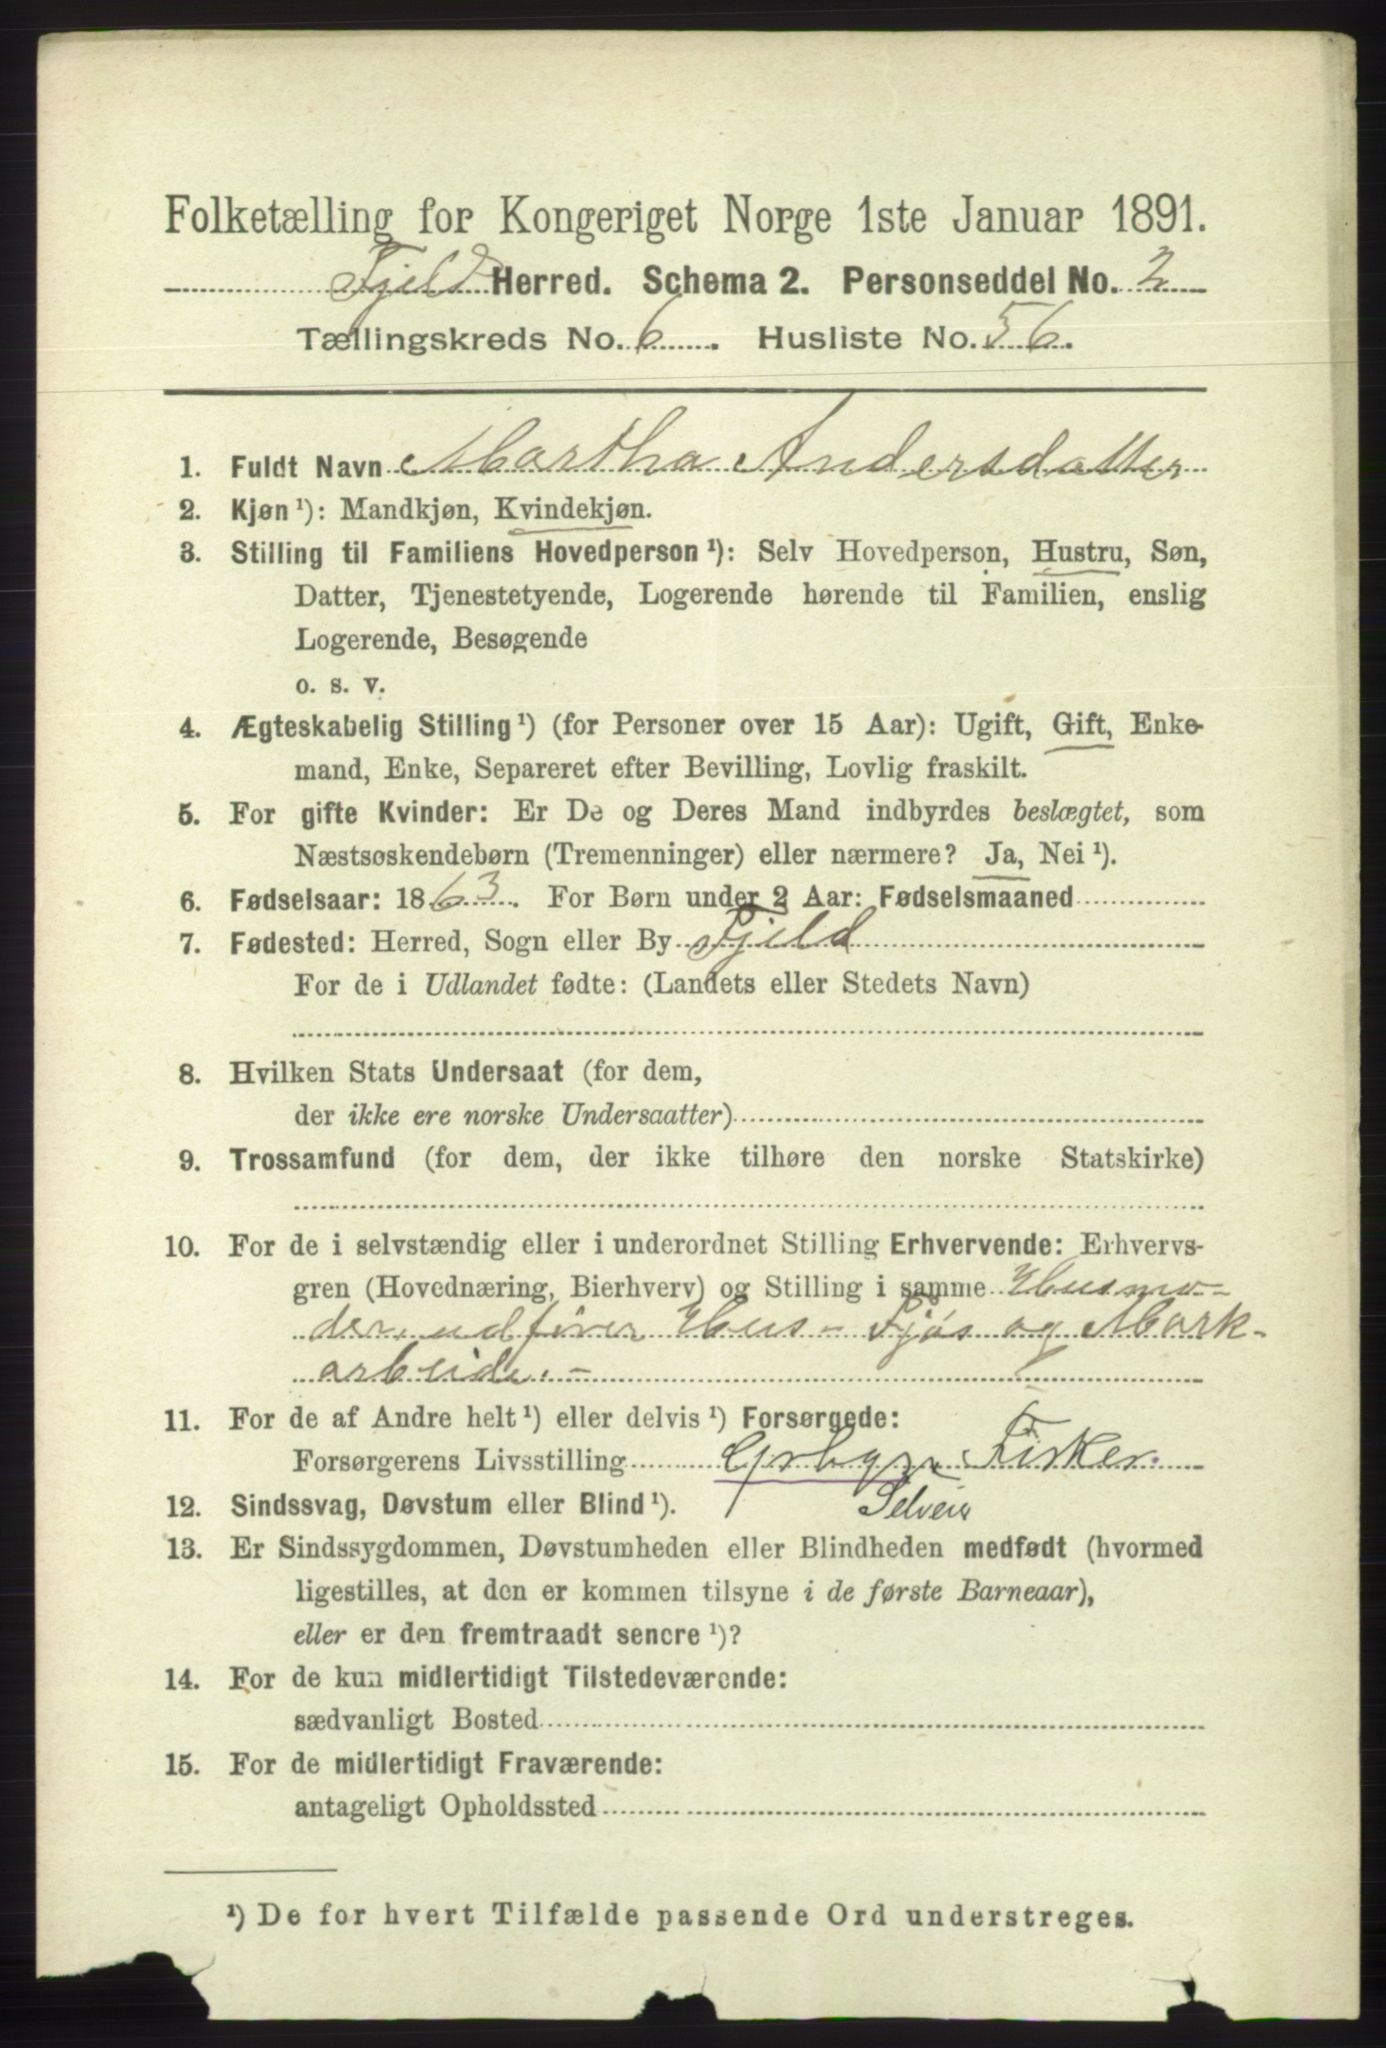 Folketælling for Kongeriget Norge 1ste Januar 1891.
Fjeld Herred. Schema 2. Personseddel No. 2
Tællingskreds No. 6. Husliste No. 56.
1. Fuldt Navn Martha Andersdatter
2. Kjøn ¹): Mandkjøn, Kvindekjøn.
3. Stilling til Familiens Hovedperson ¹): Selv Hovedperson, Hustru, Søn,
Datter, Tjenestetyende, Logerende hørende til Familien, enslig
Logerende, Besøgende
o. s. v.
4. Ægteskabelig Stilling ¹) (for Personer over 15 Aar): Ugift, Gift, Enke-
mand, Enke, Separeret efter Bevilling, Lovlig fraskilt.
5. For gifte Kvinder: Er De og Deres Mand indbyrdes beslægtet, som
Næstsøskendebørn (Tremenninger) eller nærmere? Ja, Nei ¹).
6. Fødselsaar: 1863. For Børn under 2 Aar: Fødselsmaaned
7. Fødested: Herred, Sogn eller By Fjeld
For de i Udlandet fødte: (Landets eller Stedets Navn)
8. Hvilken Stats Undersaat (for dem,
der ikke ere norske Undersaatter)
9. Trossamfund (for dem, der ikke tilhøre den norske Statskirke)
10. For de i selvstændig eller i underordnet Stilling Erhvervende: Erhvervs-
gren (Hovednæring, Bierhverv) og Stilling i samme Husmo-
der, udfører Hus- Fjøs og Mark-
arbeide.-
11. For de af Andre helt ¹) eller delvis ¹) Forsørgede:
Forsørgerens Livsstilling Grbgr Fisker.
12. Sindssvag, Døvstum eller Blind ¹). Selveier
13. Er Sindssygdommen, Døvstumheden eller Blindheden medfødt (hvormed
ligestilles, at den er kommen tilsyne i de første Barneaar),
eller er den fremtraadt senere ¹)?
14. For de kun midlertidigt Tilstedeværende:
sædvanligt Bosted
15. For de midlertidigt Fraværende:
antageligt Opholdssted
¹) De for hvert Tilfælde passende Ord understreges.